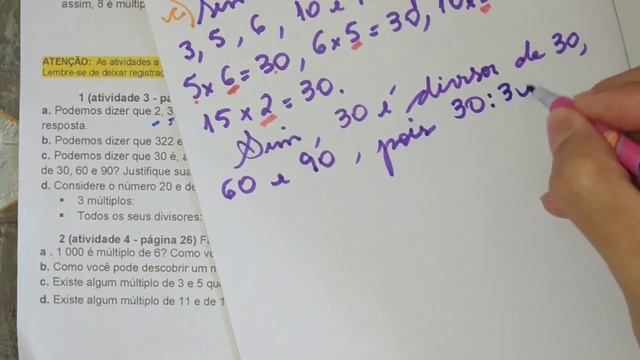 assim, 8 é múltiplo
ATENÇÃO: As atividades a
Lembre-se de deixar registrad
1 (atividade 3 - pá
a. Podemos dizer que 2, 3,
resposta.
b. Podemos dizer que 322 é
c. Podemos dizer que 30 é, a
de 30, 60 e 90? Justifique sua
d. Considere o número 20 e de
3 múltiplos:
Todos os seus divisores:
2 (atividade 4 - página 26) F
a . 1 000 é múltiplo de 6? Como vo
b. Como você pode descobrir um n
c. Existe algum múltiplo de 3 e 5 que
d. Existe algum múltiplo de 11 e de 1
c) Sim
3, 5, 6, 10 e 1
5 x 6 = 30, 6 x 5 = 30, 10 x
15 x 2 = 30.
Sim, 30 é divisor de 30,
60 e 90, pois 30:3